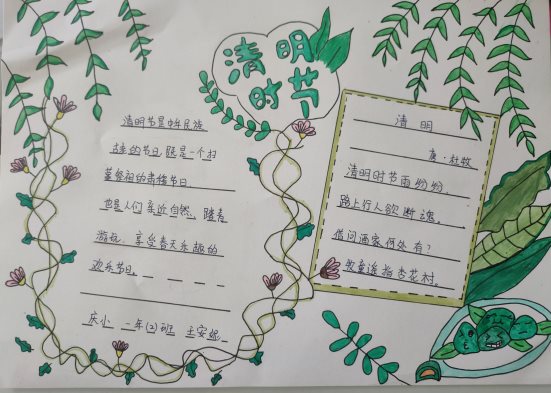 清明
时节
清明节是中华民族
古老的节日,既是一个扫
墓祭祖的肃穆节日
也是人们亲近自然、踏青
游玩、享受春天乐趣的
欢乐节日。
庆小 一年(2)班 王安妮
清明
唐·杜牧
清明时节雨纷纷,
路上行人欲断魂。
借问酒家何处有?
牧童遥指杏花村。